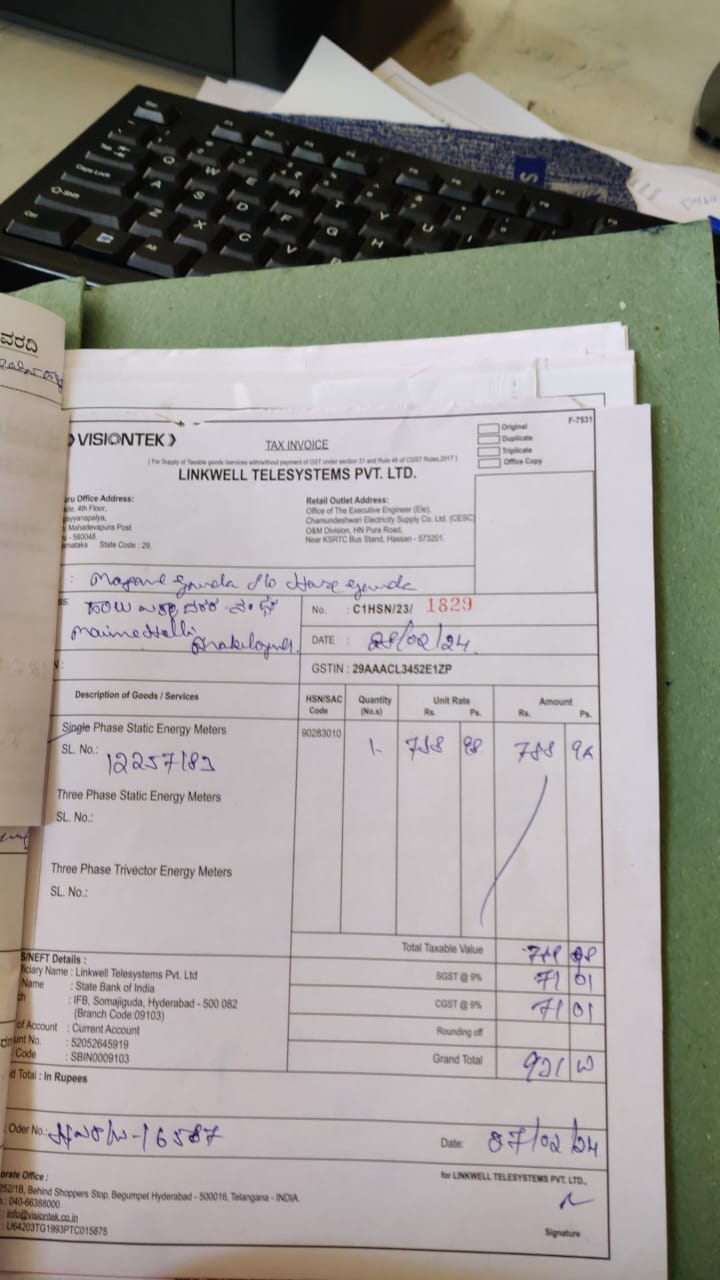 ವರದಿ
VISIONTEK
TAX INVOICE
( For Supply of Taxable goods /services with/without payment of GST under section 31 and Rule 46 of CGST Rules,2017 )
LINKWELL TELESYSTEMS PVT. LTD.
Original
Duplicate
Triplicate
Office Copy
F-7531
ru Office Address:
de, 4th Floor,
yyanapalya,
Mahadevapura Post
- 560048.
rnataka State Code : 29.
Retail Outlet Address:
Office of The Executive Engineer (Ele),
Chamundeshwari Electricity Supply Co. Ltd. (CESC)
O&M Division, HN Pura Road,
Near KSRTC Bus Stand, Hassan - 573201.
No. : C1HSN/23/ 1829
DATE : 28/02/24
GSTIN : 29AAACL3452E1ZP
Description of Goods / Services
HSN/SAC Code
Quantity (No.s)
Unit Rate
Rs. Ps.
Amount
Rs. Ps.
Single Phase Static Energy Meters
90283010
SL. No.:
Three Phase Static Energy Meters
SL. No.:
Three Phase Trivector Energy Meters
SL. No.:
Total Taxable Value
SGST @ 9% 71 01
CGST @ 9% 71 01
Rounding off
Grand Total
S/NEFT Details :
ficiary Name : Linkwell Telesystems Pvt. Ltd
Name : State Bank of India
ch : IFB, Somajiguda, Hyderabad - 500 082
(Branch Code:09103)
of Account : Current Account
unt No. : 52052645919
Code : SBIN0009103
d Total : In Rupees
Oder No.: 16587
Date: 07/02/24
for LINKWELL TELESYSTEMS PVT. LTD.,
Signature
orate Office :
252/1B, Behind Shoppers Stop, Begumpet Hyderabad - 500016, Telangana - INDIA.
: 040-66388000
: info@visiontek.co.in
: U64203TG1993PTC015875